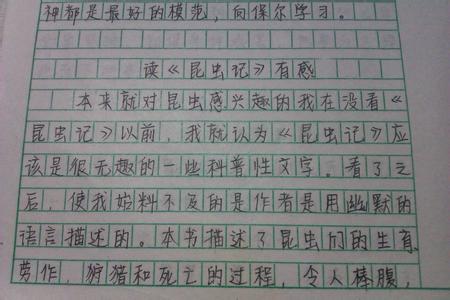 神都是最好的模范，向保尔学习。
读《昆虫记》有感
本来就对昆虫感兴趣的我在没看《
昆虫记》以前，我就认为《昆虫记》应
该是很无趣的一些科普性文字。看了之
后，使我始料不及的是作者是用幽默的
语言描述的。本书描述了昆虫们的生育、
劳作、狩猎和死亡的过程，令人棒腹，